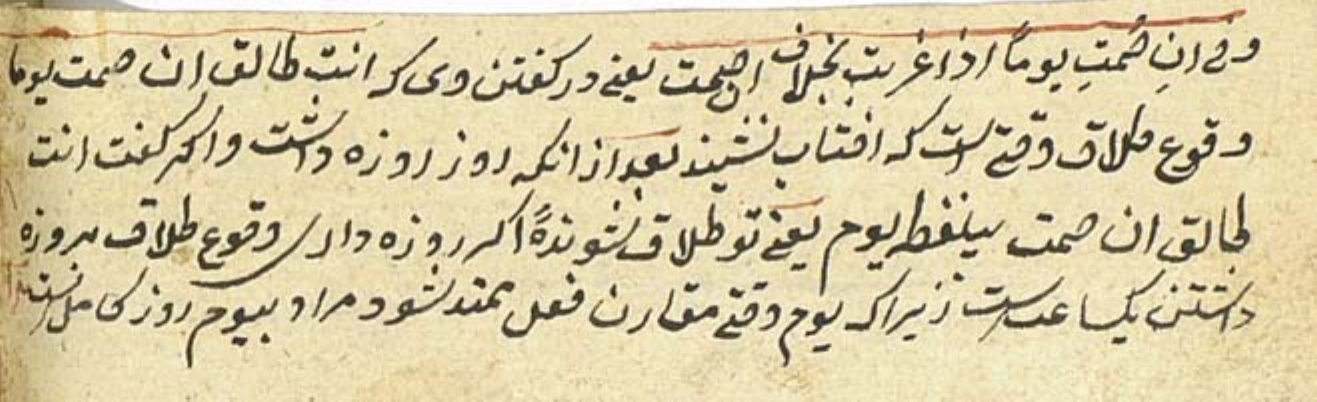 وفى ان صُمتِ يوماً اذا غربت بخلاف ان صمت يعنے در كفتن وى كه انت طالق ان صمت يوما
وقوع طلاق وقتے است كه افتاب نشيند بعد از انكه روز روزه داشت واكر كفت انت
طالق ان صمت بيلفظ يوم يعنے تو طلاق شوندۀ اكر روزه دارى وقوع طلاق بروزه
داشتن يكساعت است زيرا كه يوم وقتے مقارن فعل ممتد شود مراد بيوم روز كامل است